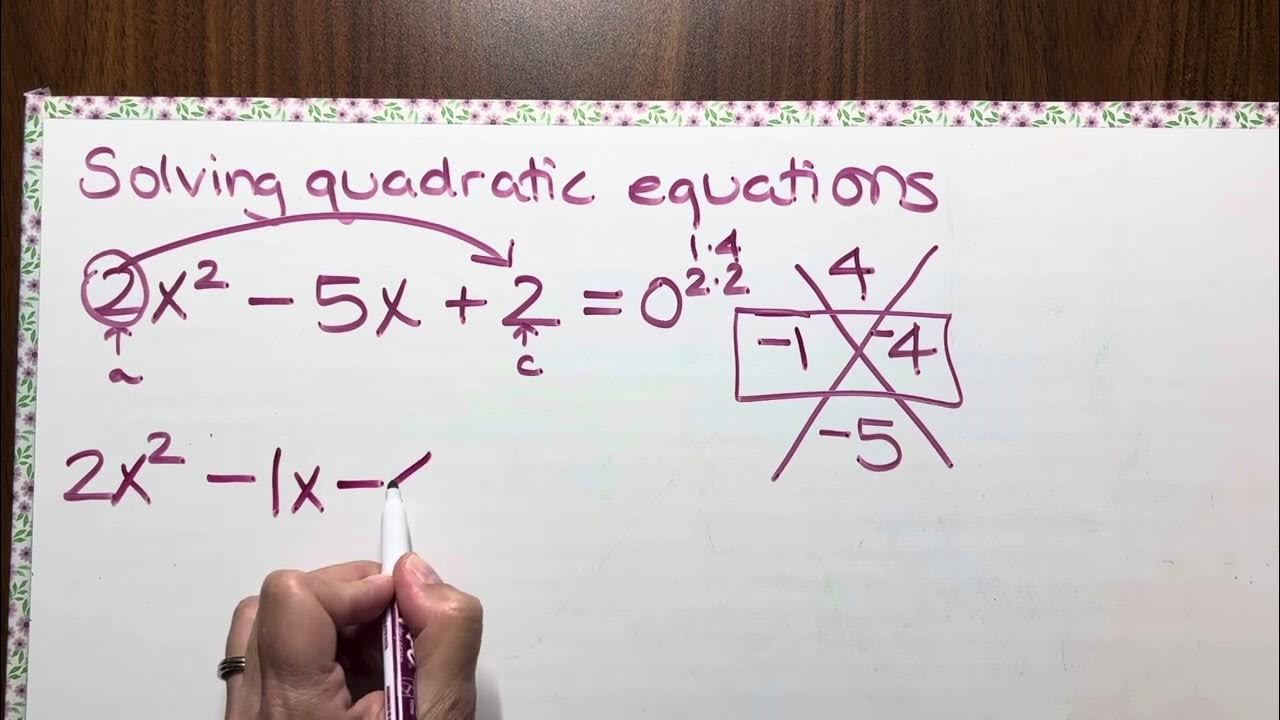 Solving quadratic equations
1·4
2x² - 5x + 2 = 0
2·2
4
-1 -4
-5
a
c
2x² - 1x -